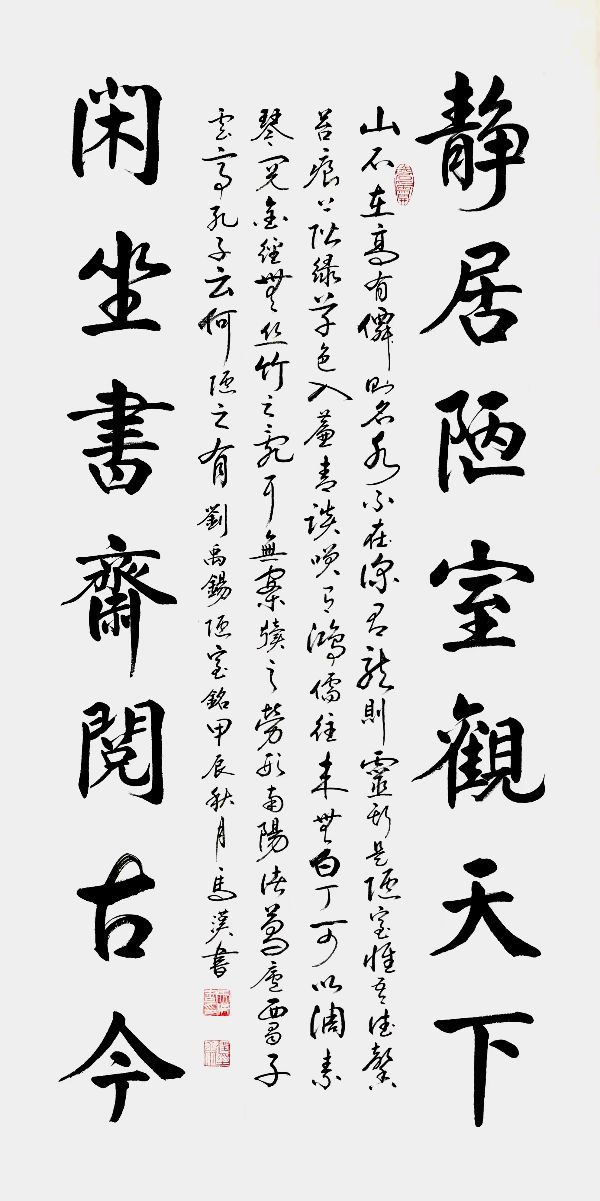 靜居陋室觀天下
山不在高有僊則名水不在深有龍則靈斯是陋室惟吾德馨
苔痕上階綠草色入簾青談笑有鴻儒往來無白丁可以調素
琴閱金經無絲竹之亂耳無案牘之勞形南陽諸葛廬西蜀子
雲亭孔子云何陋之有 劉禹錫陋室銘甲辰秋月馬漢書
閑坐書齋閱古今